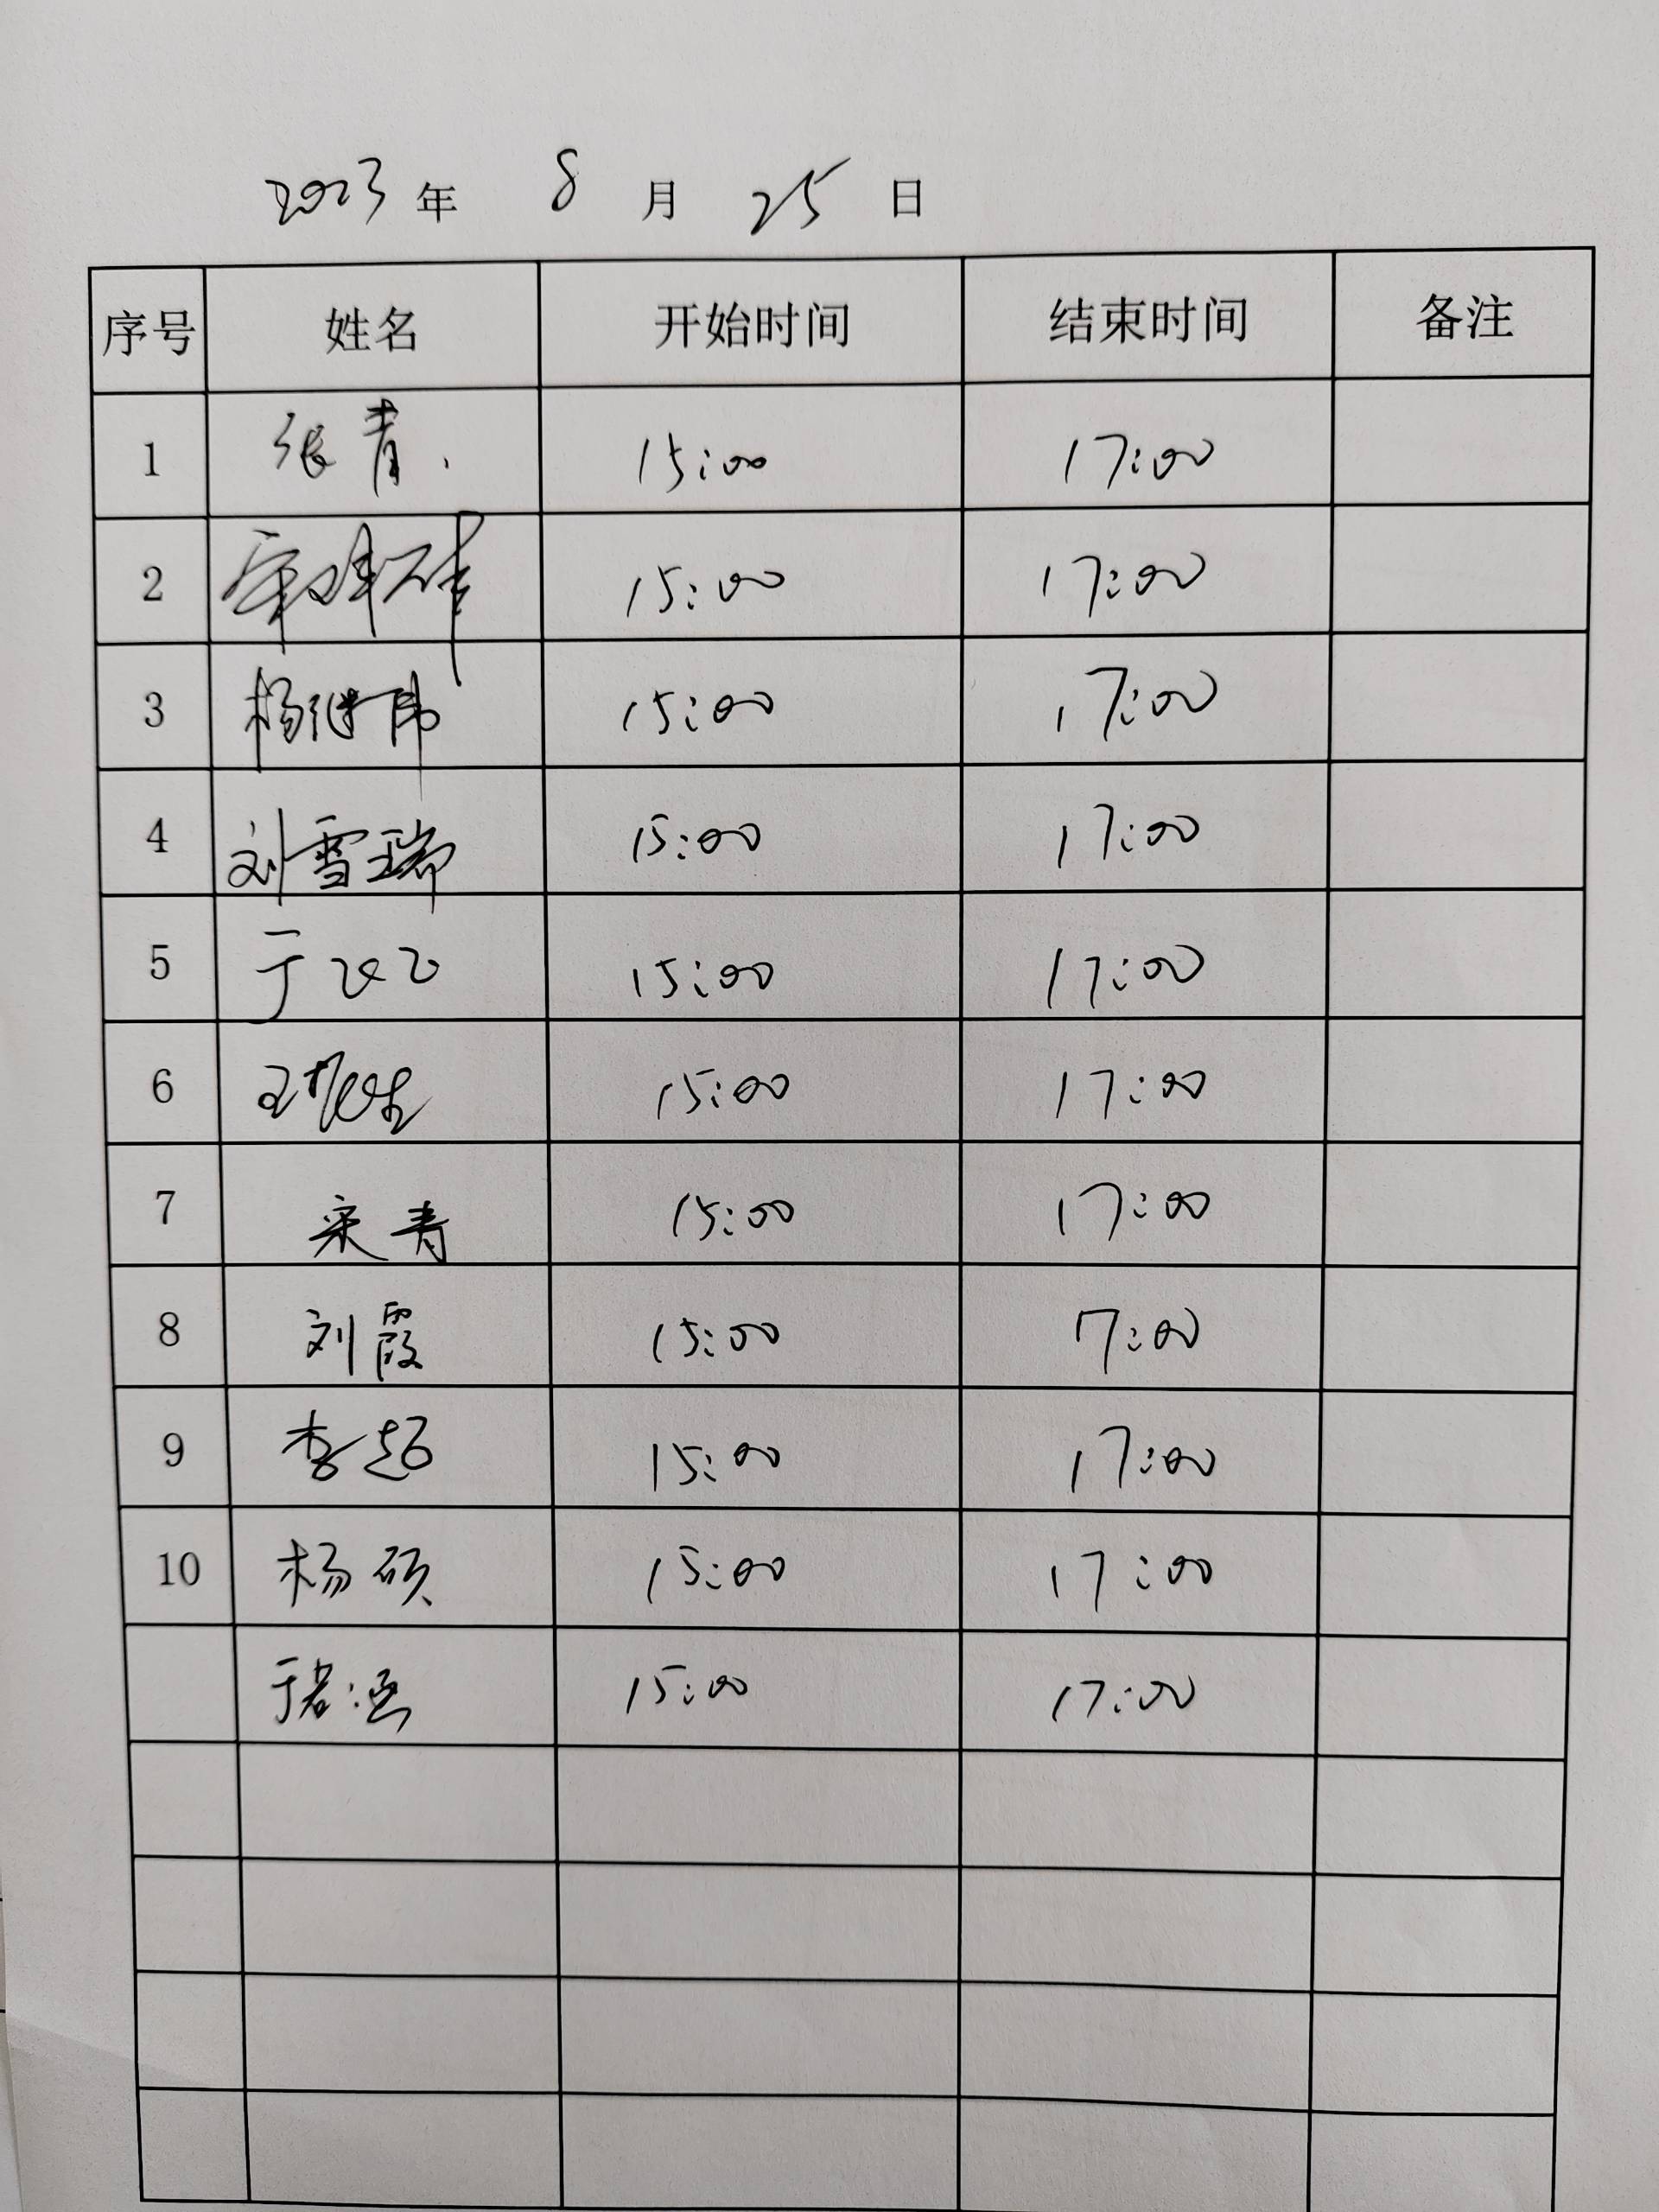 2023年 8月 25日
序号 姓名 开始时间 结束时间 备注
1 张青 15:00 17:00
2 15:00 17:00
3 杨继伟 15:00 17:00
4 刘雪瑞 15:00 17:00
5 于 15:00 17:00
6 王 15:00 17:00
7 宋青 15:00 17:00
8 刘霞 15:00 17:00
9 李超 15:00 17:00
10 杨硕 15:00 17:00
于若涵 15:00 17:00